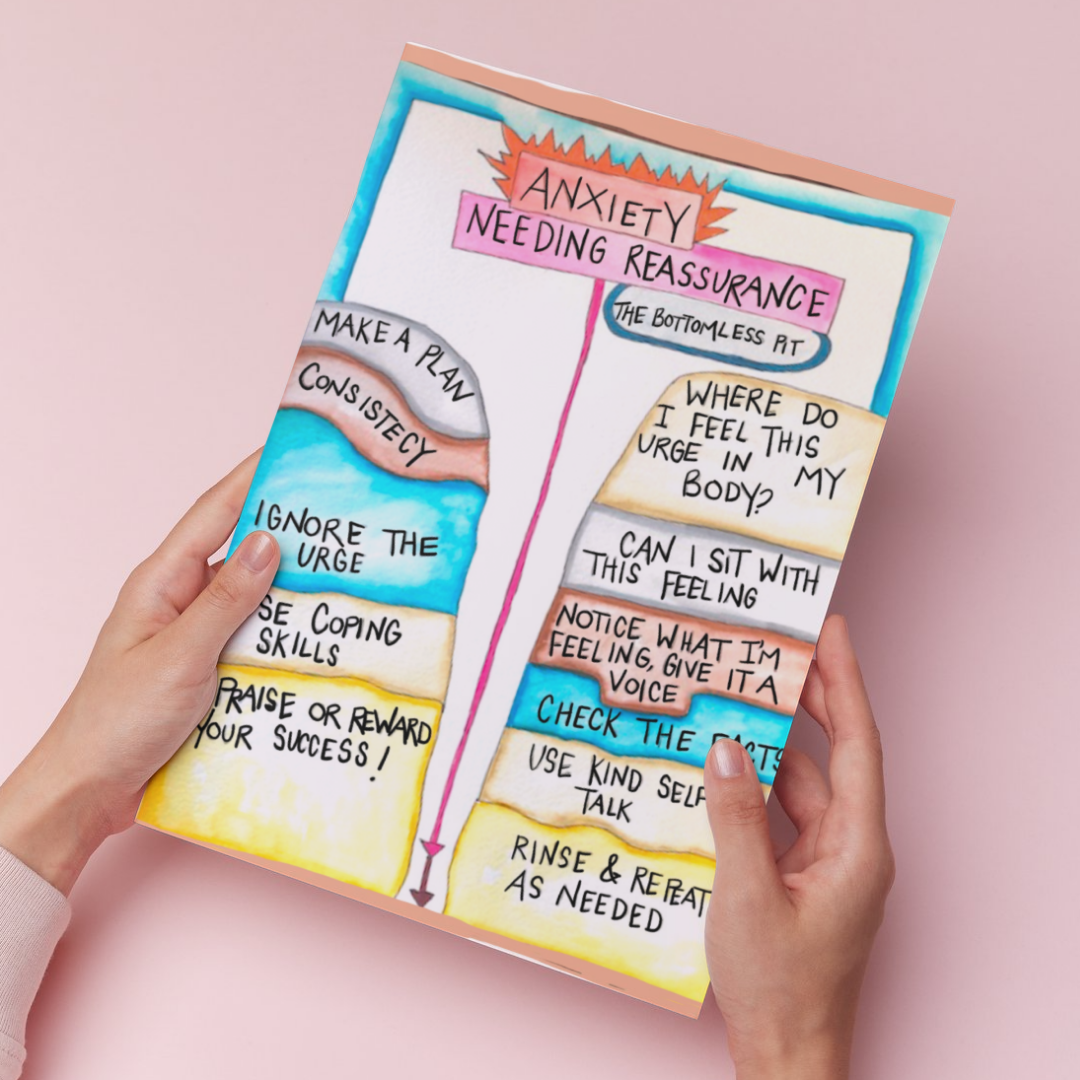 ANXIETY
NEEDING REASSURANCE
THE BOTTOMLESS PIT
MAKE A PLAN
CONSISTECY
IGNORE THE
URGE
SE COPING
SKILLS
PRAISE OR REWARD
YOUR SUCCESS!
WHERE DO
I FEEL THIS
URGE IN MY
BODY?
CAN I SIT WITH
THIS FEELING
NOTICE WHAT I'M
FEELING, GIVE IT A
VOICE
CHECK THE FACTS
USE KIND SELF
TALK
RINSE & REPEAT
AS NEEDED